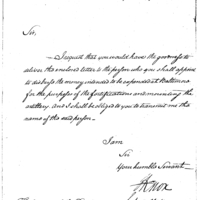 Sir,
I request that you would have the goodness to
deliver the enclosed letter to the person who you shall appoint
to disburse the money intended to be expended at Baltimore
for the purposes of the fortifications and mounting the
artillery. and I shall be obliged to you to transmit me the
name of the said person.
I am
Sir
Your humble Servant
HKnox